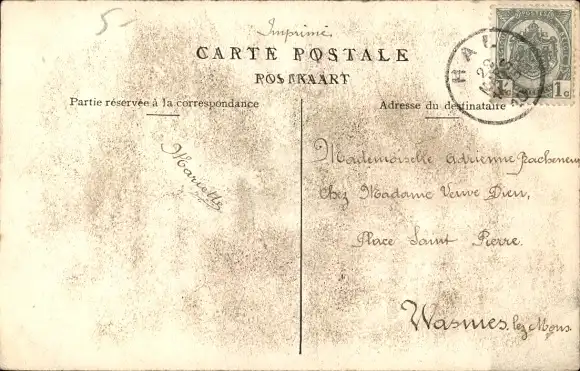 5-
Imprimé
CARTE POSTALE
POSTKAART
Partie réservée à la correspondance
Adresse du destinataire
HAL
1c
Mariette
Mademoiselle Adrienne
Chez Madame Veuve Dieu,
Place Saint Pierre.
Wasmes. lez Mons.